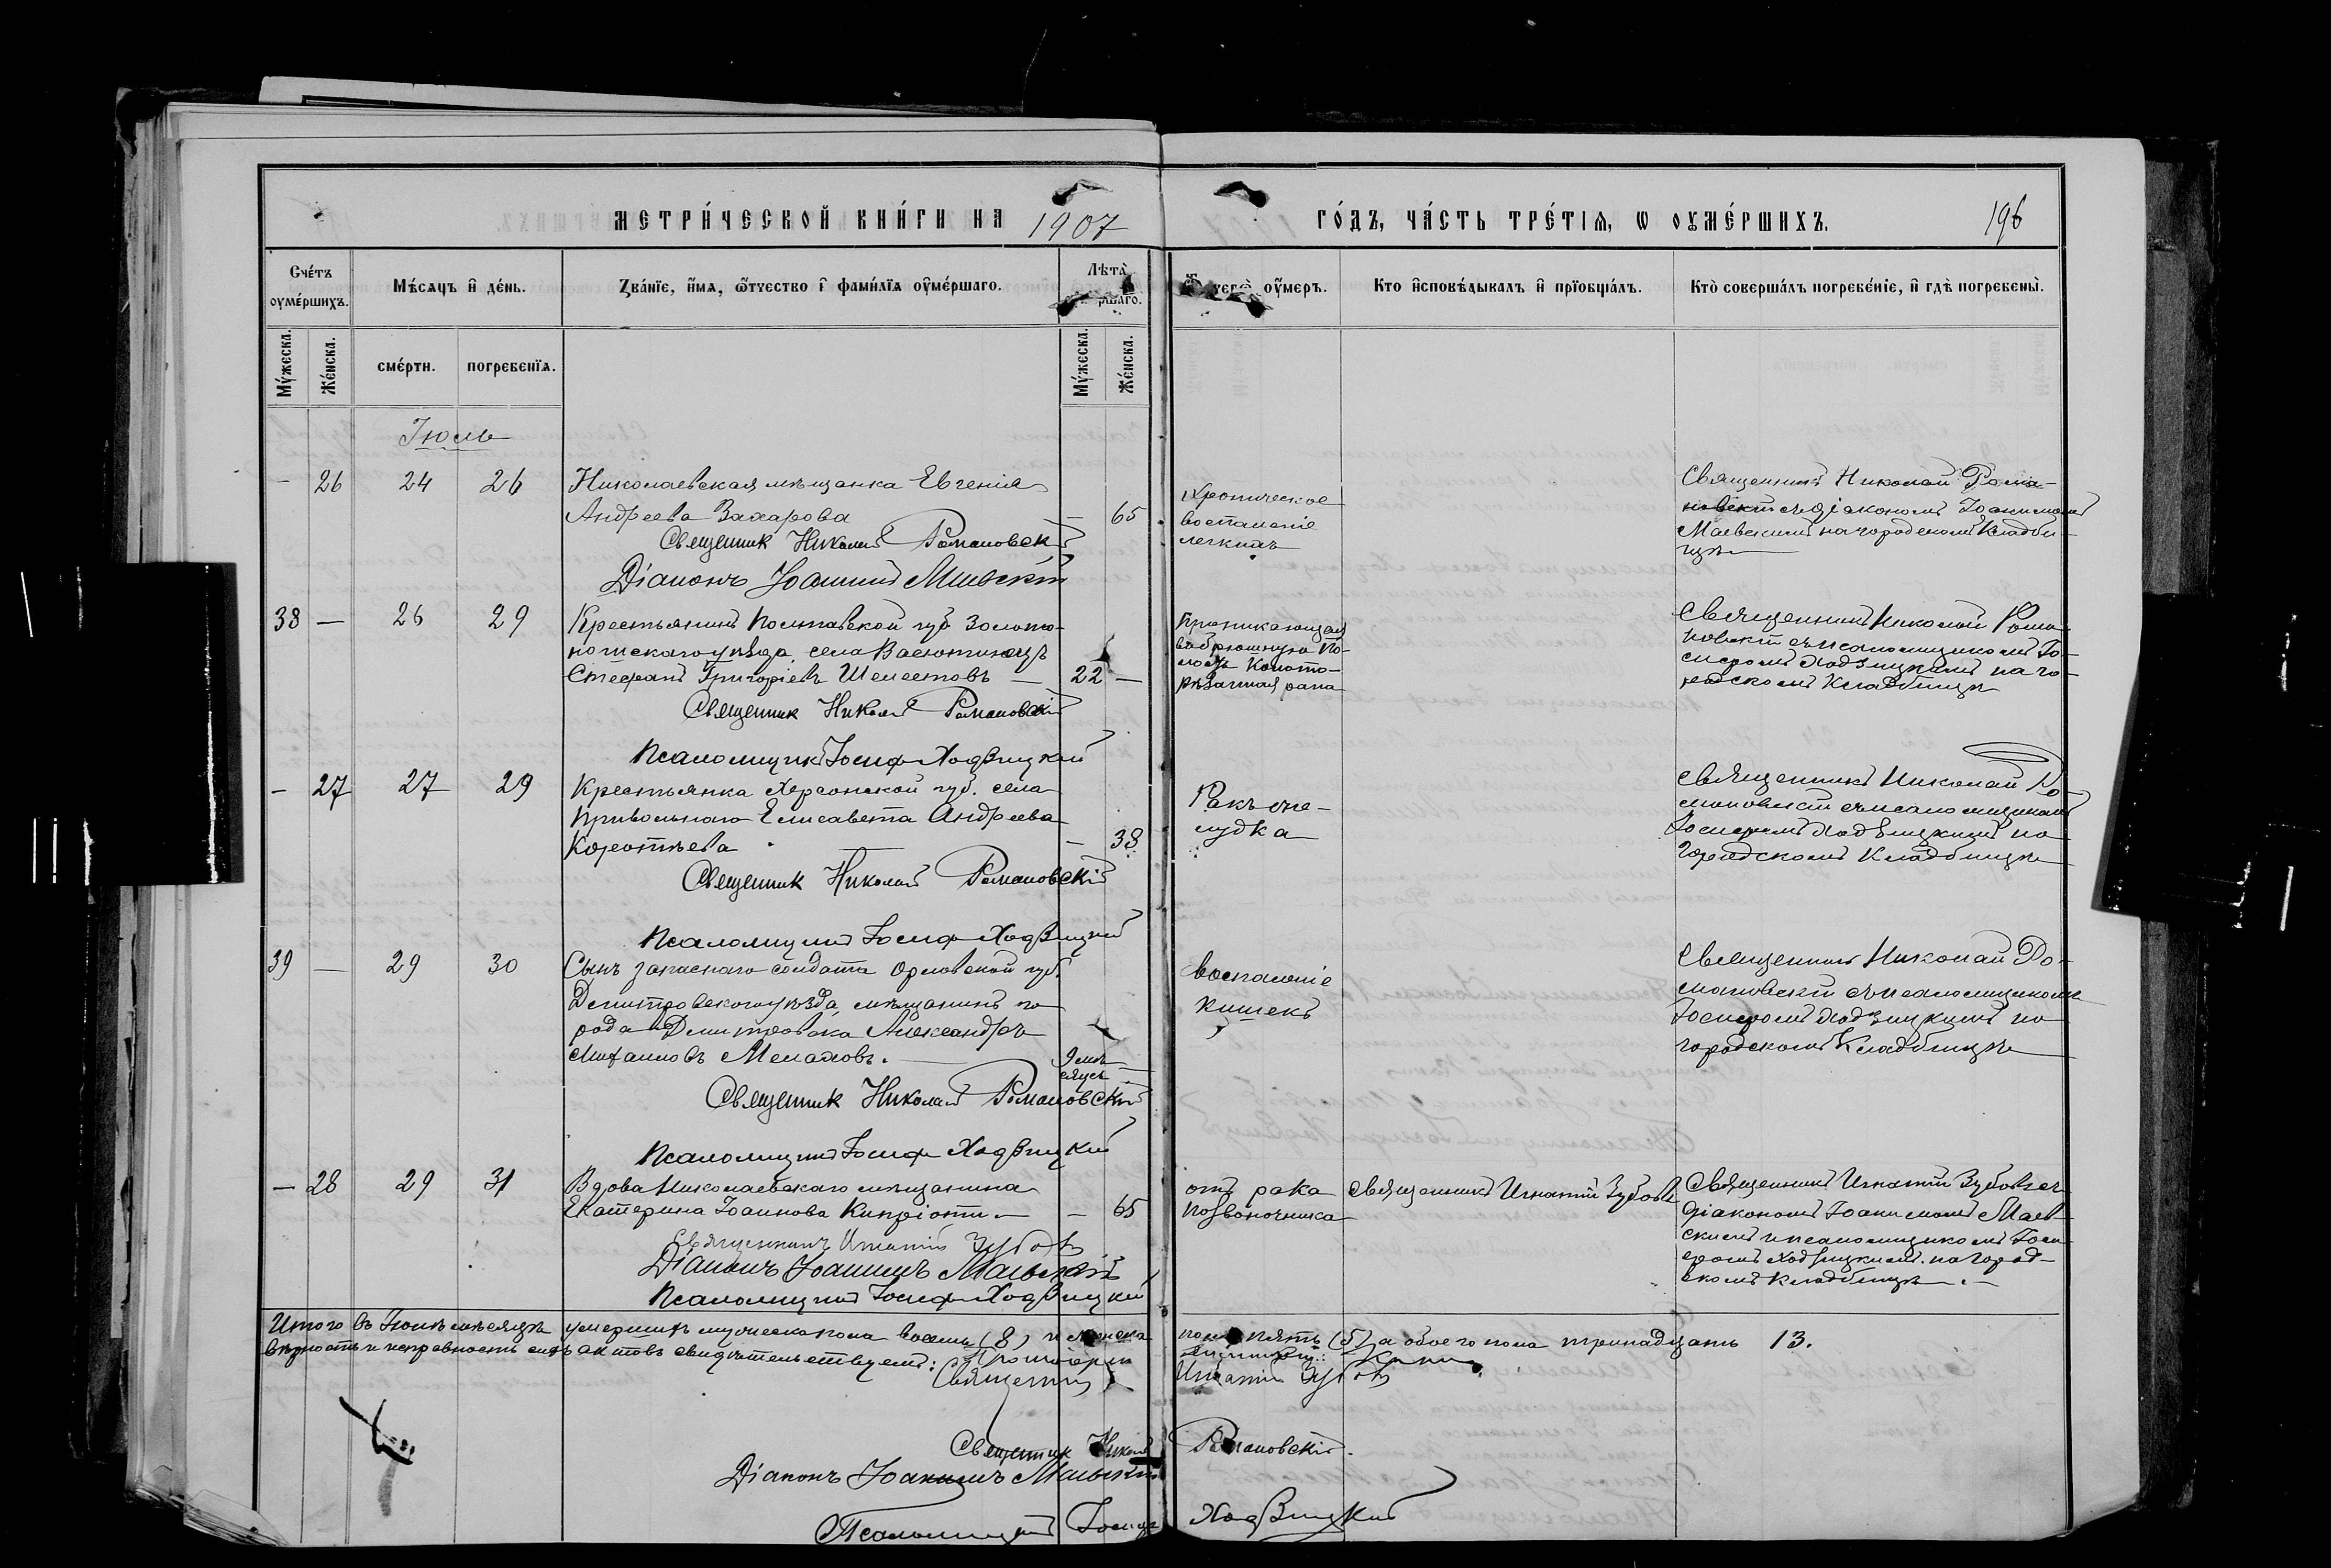 МЕТРИ́ЧЕСКОЙ КНИ́ГИ НА 1907 ГО́ДЪ, ЧА́СТЬ ТРЕ́ТІѦ, Ѡ ОУМЕ́РШИХЪ. 196
Сче́тъ оуме́ршихъ.
Мѣ́сяцъ и де́нь.
Зва́нїе, и́мѧ, ѻ҆́тчество і҆ фами́лїѧ оуме́ршаго.
Лѣта̀
Кто и҆сповѣ́дывалъ и҆ прїобща́лъ.
Кто̀ соверша́лъ погребе́нїе, и҆ гдѣ̀ погребены̀.
Му́жеска. Же́нска. сме́рти. погребенїѧ. Му́жеска. Же́нска.
Іюль
– 26 24 26 Николаевская мѣщанка Евгенія
Андреева Захарова – 65
Священник Николай Романовскій
Діаконъ Іоакимъ Маевскій
Хроническое
воспаленіе
легкихъ
Священникъ Николай Рома-
новскій съ діакономъ Іоакимомъ
Маевскимъ на городскомъ кладби-
щѣ
38 – 26 29 Крестьянинъ Полтавской губ Золото-
ношскаго уѣзда, села Васютинецъ
Стефанъ Григоріевъ Шелестовъ – 22 –
Священник Николай Романовскій
Псаломщикъ Іосиф Ходзицкий
Проникающая
въ брюшную по-
лость колото-
рѣзанная рана
Священникъ Николай Рома-
новскій съ псаломщикомъ Іо-
сифомъ Ходзицкимъ на го-
родскомъ кладбищѣ
– 27 27 29 Крестьянка Херсонской губ. села
Привольнаго Елисавета Андреева
Коротѣева – 38
Священник Николай Романовскій
Псаломщикъ Іосиф Ходзицкий
Ракъ же-
лудка
Священникъ Николай Ро-
мановскій съ псаломщикомъ
Іосифомъ Ходзицкимъ на
городскомъ кладбищѣ
39 – 29 30 Сынъ запаснаго солдата Орловской губ.
Дмитровскаго уѣзда, мѣщанинъ го-
рода Дмитровска Александръ
Михаиловъ 9 мѣ-
сяцъ –
Священник Николай Романовскій
Псаломщикъ Іосиф Ходзицкий
Воспаленіе
кишекъ
Священникъ Николай Ро-
мановскій съ псаломщикомъ
Іосифомъ Ходзицкимъ на
городскомъ кладбищѣ
– 28 29 31 Вдова Николаевскаго мѣщанина
Екатерина Іоаннова Кипріоти – – 65
Священникъ Игнатій Зубовъ
Діаконъ Іоакимъ Маевскій
Псаломщикъ Іосиф Ходзицкий
отъ рака
позвоночника
Священникъ Игнатій Зубовъ
Священникъ Игнатій Зубовъ съ
діакономъ Іоакимомъ Маев-
скимъ и псаломщикомъ Іоси-
фомъ Ходзицкимъ на город-
скомъ кладбищѣ.
Итого въ Іюлѣ мѣсяцѣ умершихъ мужеска пола восемь (8) и женска пола пять (5) а обоего пола тринадцать 13.
вѣрность и исправность сихъ актовъ свидѣтельствуемъ: Протоіерей
Священникъ Игнатій Зубовъ
Священник Николай Романовскій.
Діаконъ Іоакимъ Маевскій
Псаломщикъ Іосиф Ходзицкий